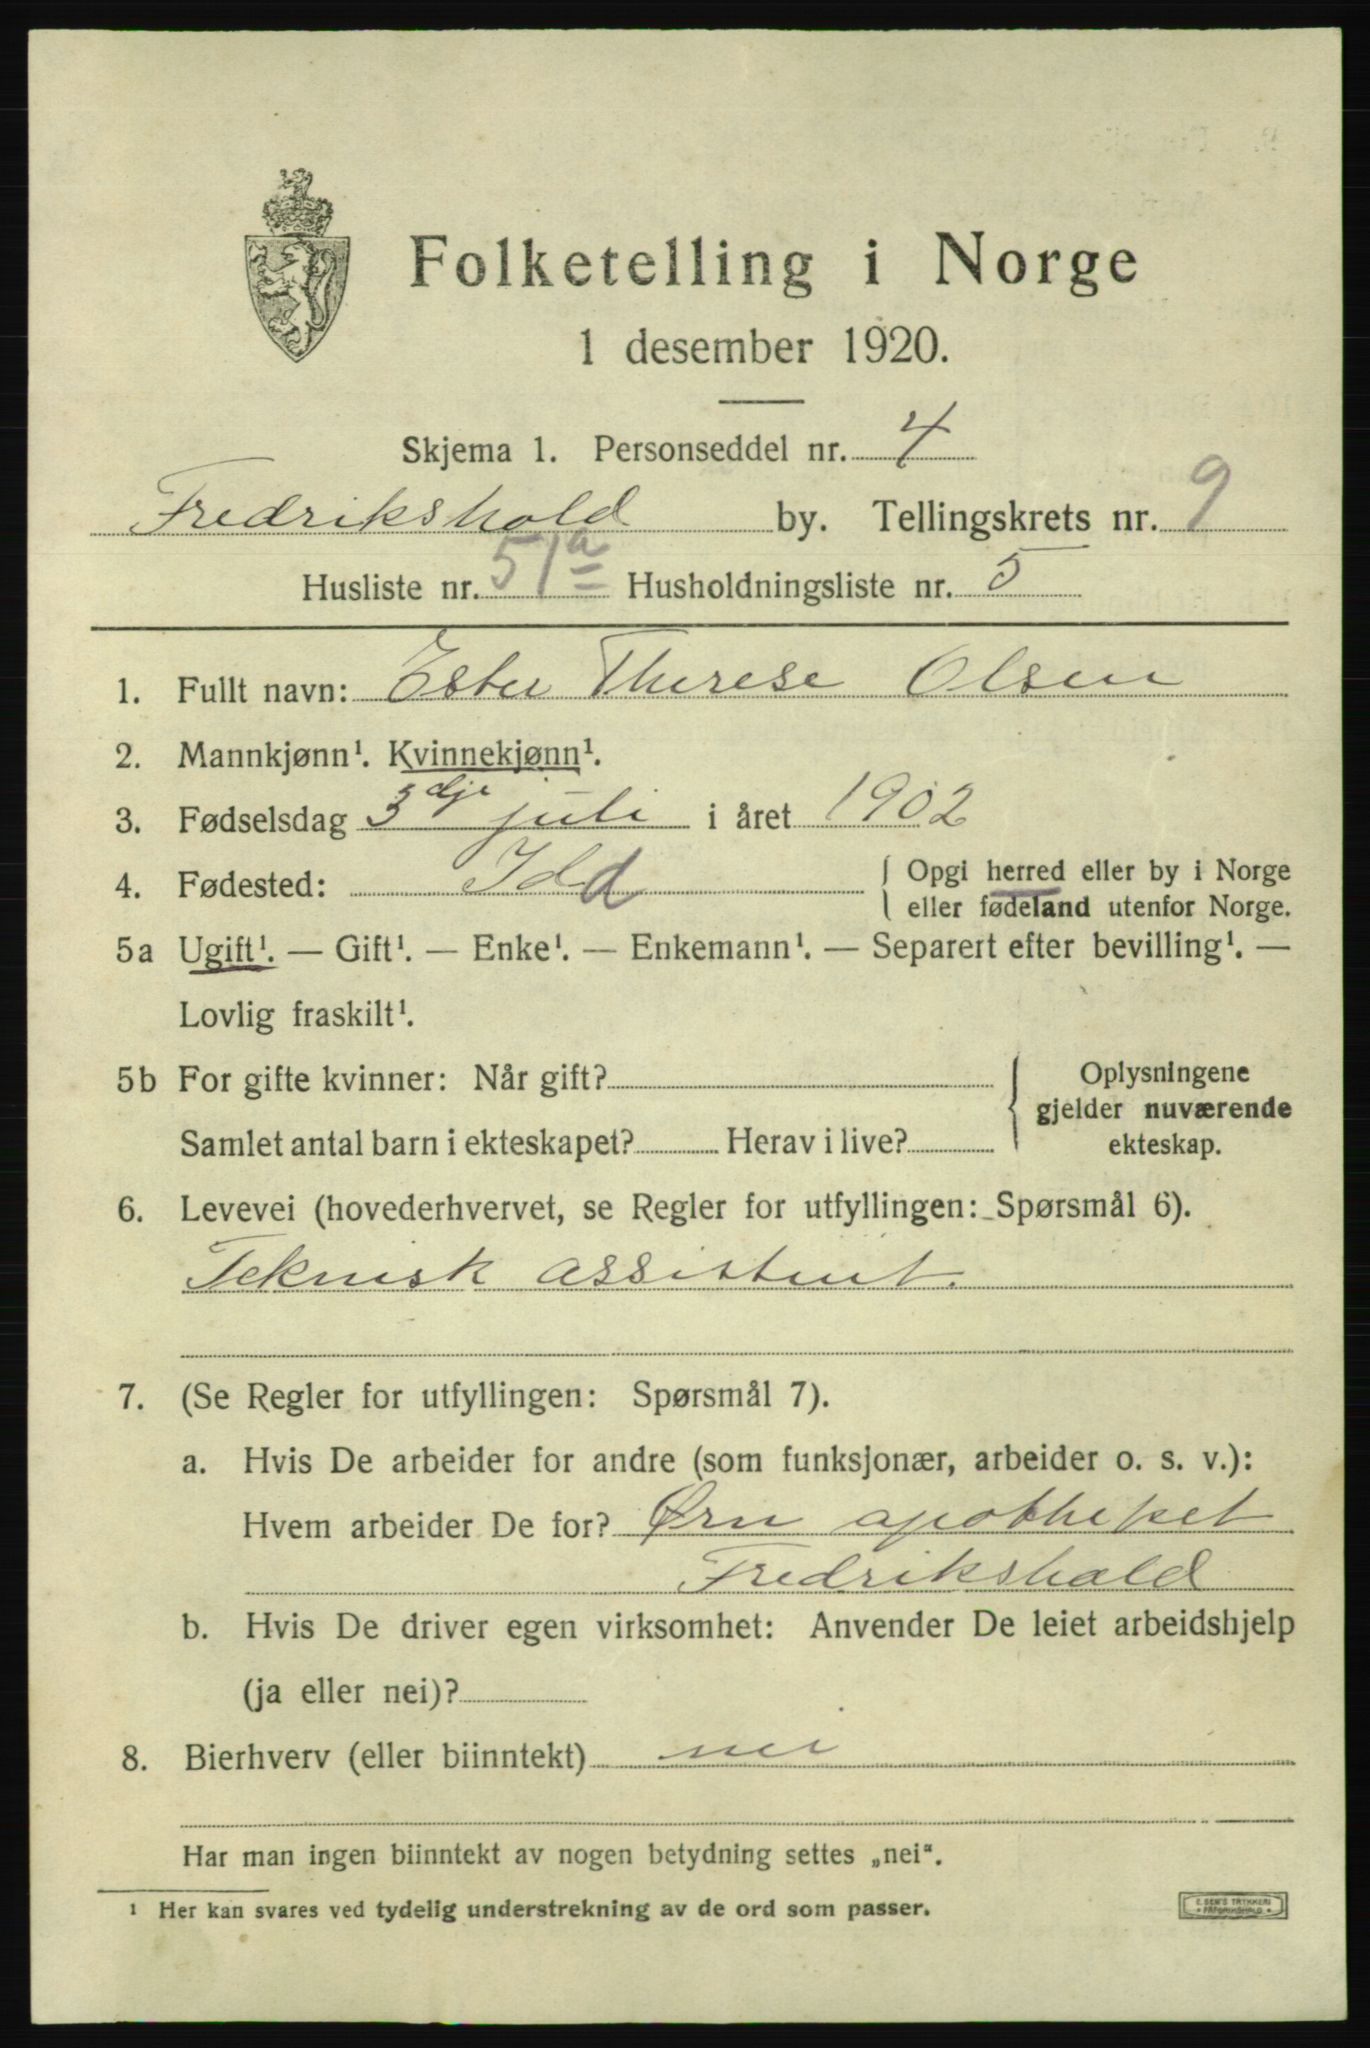 Folketelling i Norge
1 desember 1920.
Skjema 1. Personseddel nr. 4
Fredrikshald by. Tellingskrets nr. 9
Husliste nr. 51a Husholdningsliste nr. 5
1. Fullt navn: Ester Therese Olsen
2. Mannkjønn¹. Kvinnekjønn¹.
3. Fødselsdag 3dje juli i året 1902
4. Fødested: Idd { Opgi herred eller by i Norge
eller fødeland utenfor Norge.
5a Ugift¹. — Gift¹. — Enke¹. — Enkemann¹. — Separert efter bevilling¹. —
Lovlig fraskilt¹.
5b For gifte kvinner: Når gift?
Samlet antal barn i ekteskapet? Herav i live?
{ Oplysningene
gjelder nuværende
ekteskap.
6. Levevei (hovederhvervet, se Regler for utfyllingen: Spørsmål 6).
Teknisk assistent.
7. (Se Regler for utfyllingen: Spørsmål 7).
a. Hvis De arbeider for andre (som funksjonær, arbeider o. s. v.):
Hvem arbeider De for? Ørn apotheket
Fredrikshald
b. Hvis De driver egen virksomhet: Anvender De leiet arbeidshjelp
(ja eller nei)?
8. Bierhverv (eller biinntekt) nei
Har man ingen biinntekt av nogen betydning settes „nei“.
¹ Her kan svares ved tydelig understrekning av de ord som passer.